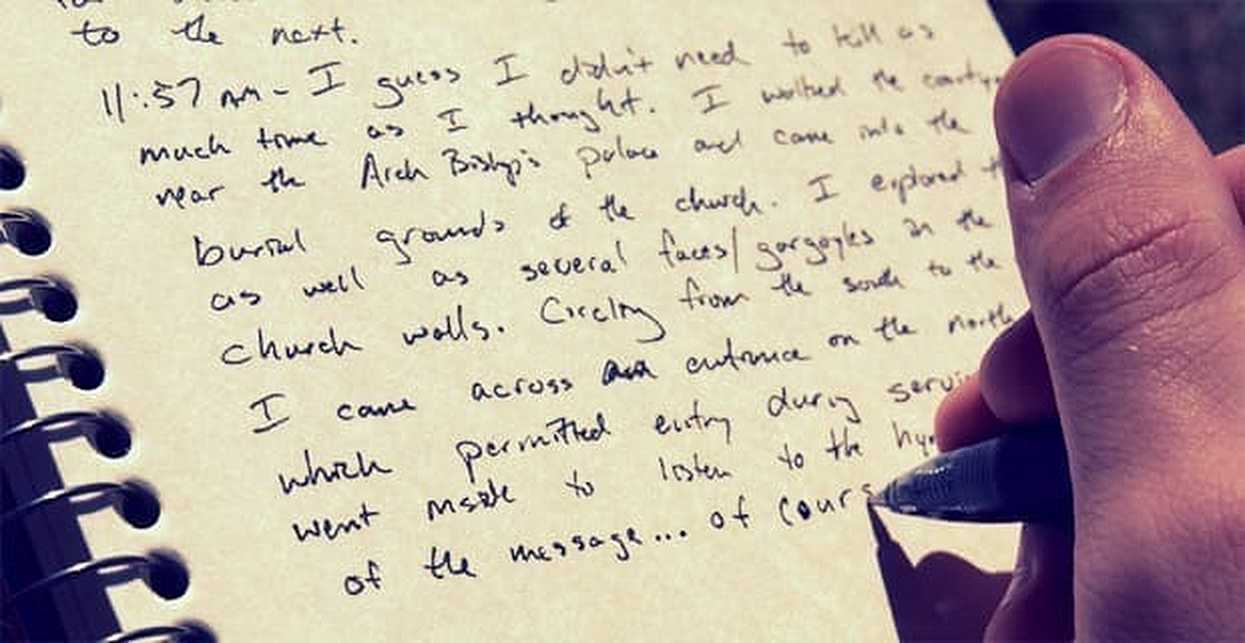 to the next.
11:57 AM - I guess I didn't need to kill as
much time as I thought. I walked the courty
near the Arch Bishop's palace and came into the
burial grounds of the church. I explored t
as well as several faces/gargoyles in the
church walls. Circling from the south to the
I came across an entrance on the north
which permitted entry during servi
went inside to listen to the hy
of the message... of cours